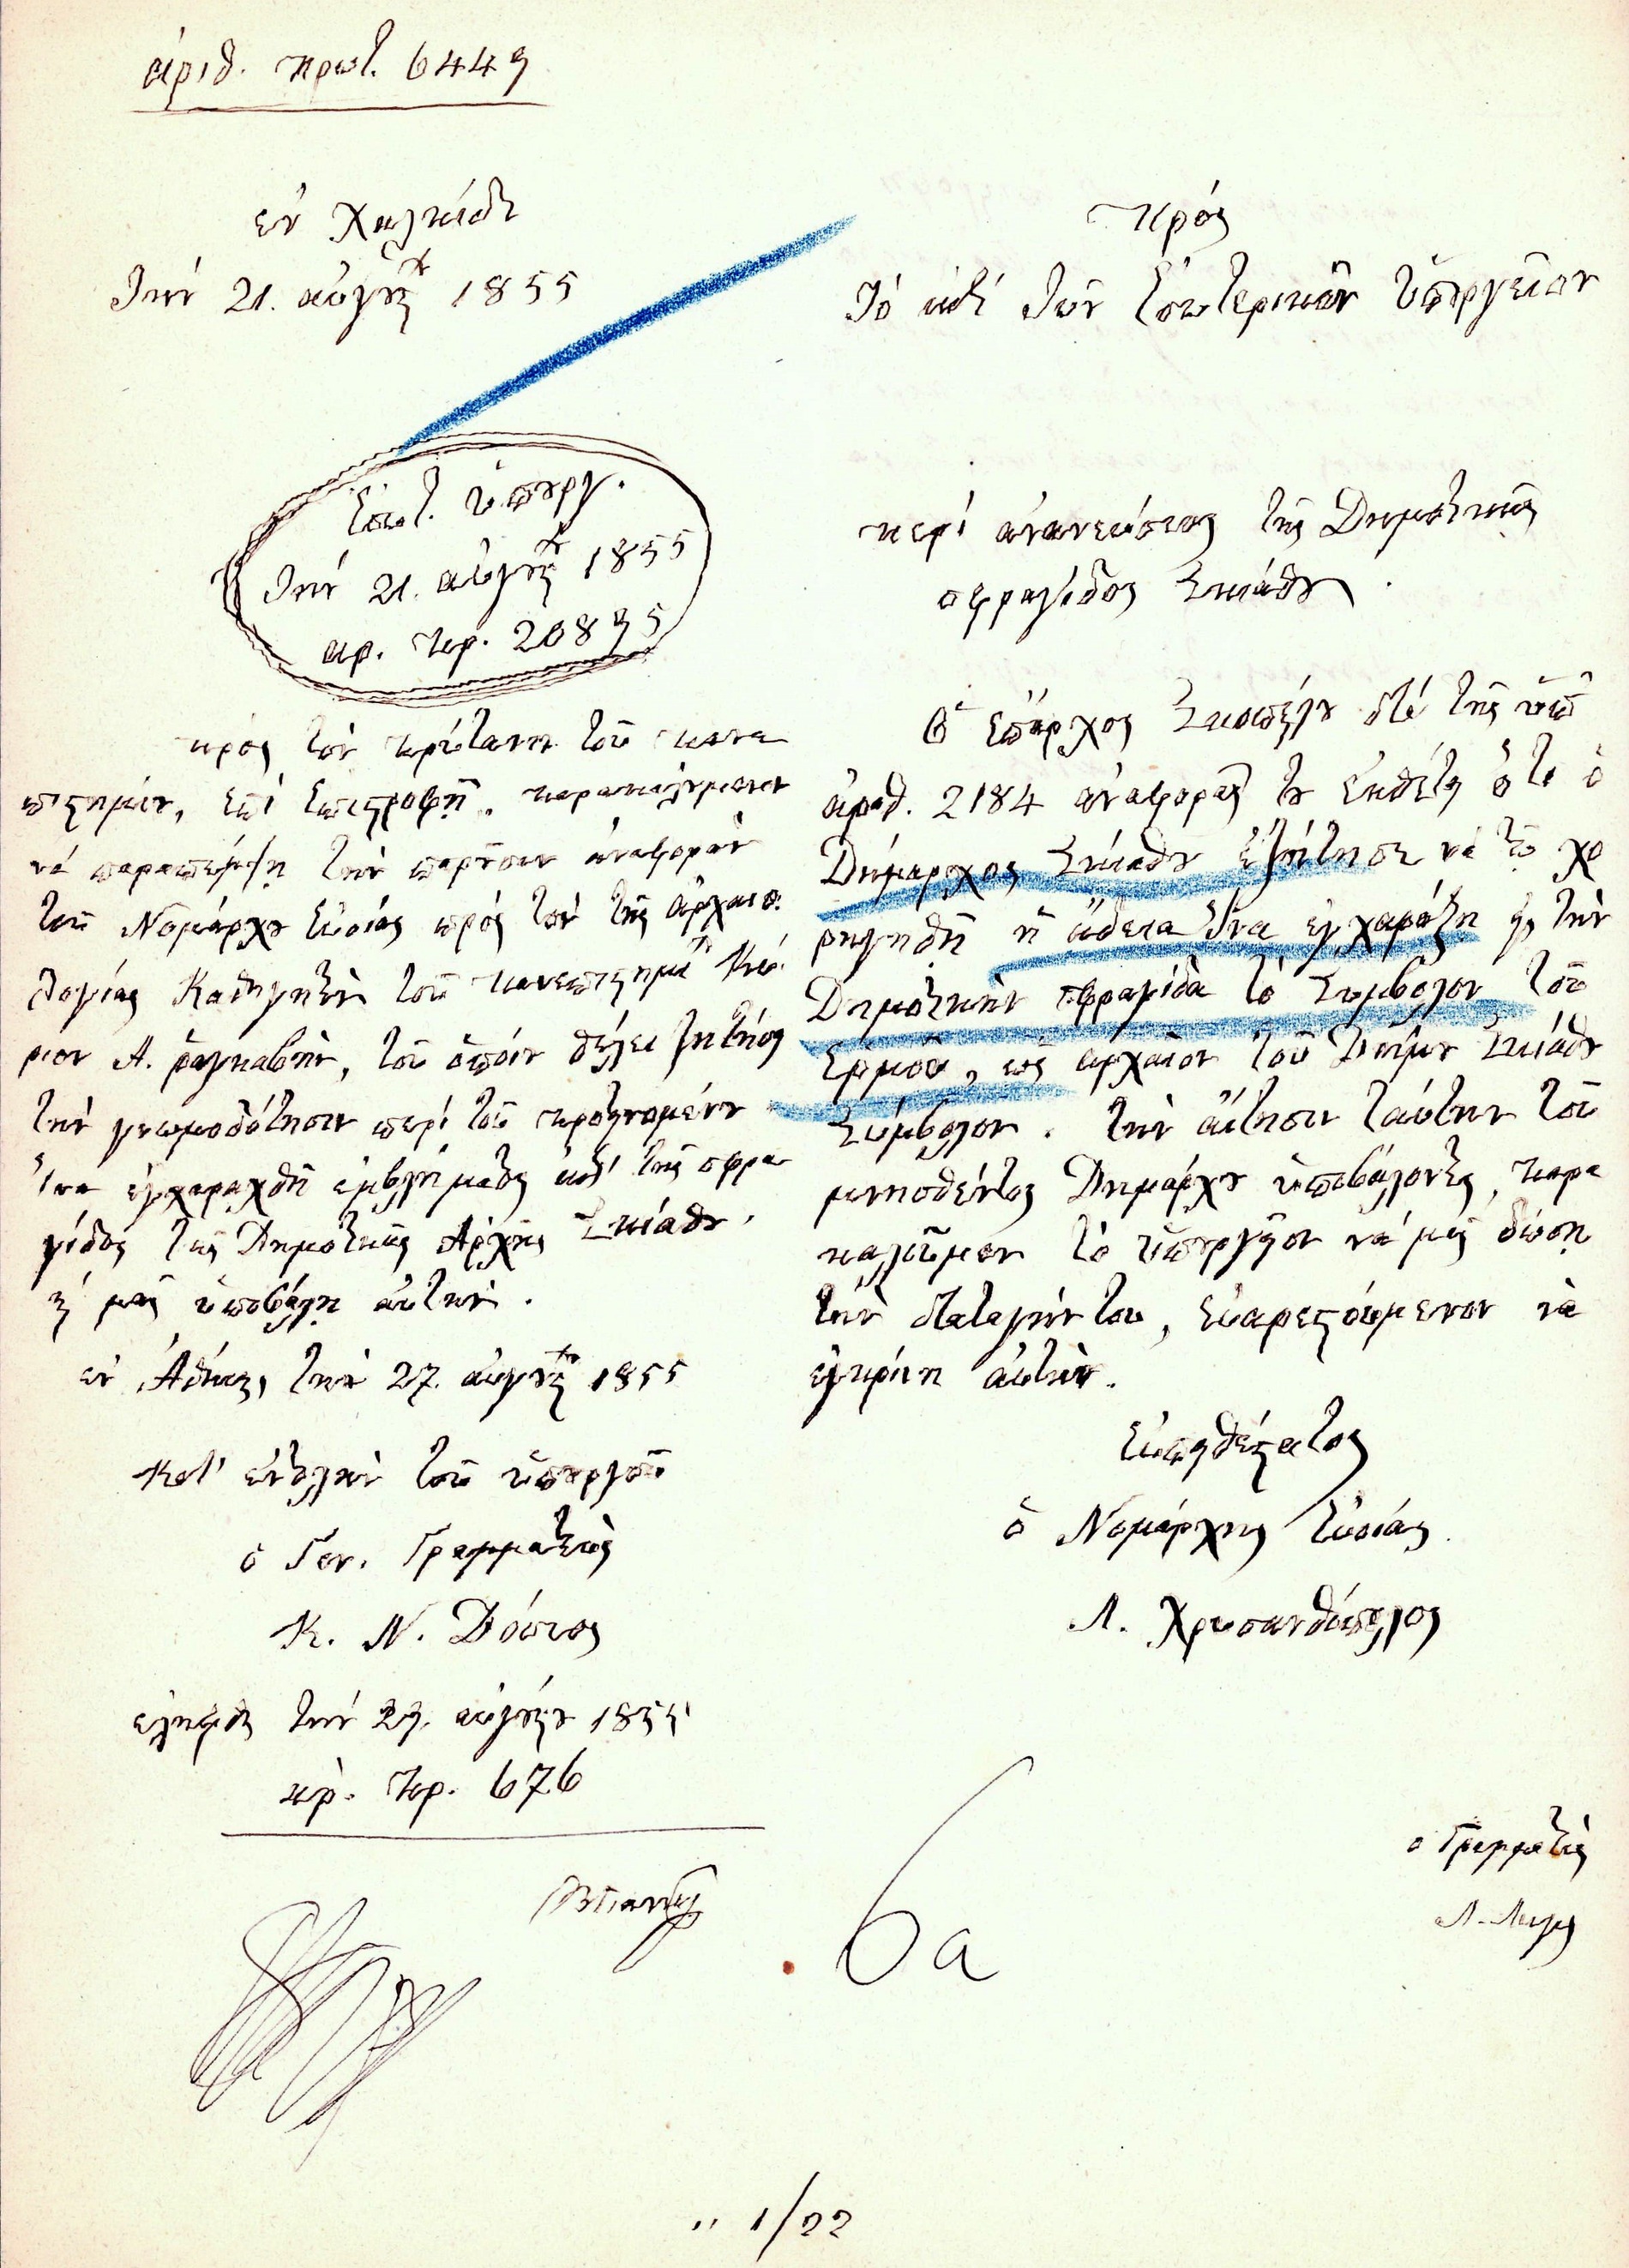 ἀριθ. πρωτ. 6449
ἐν Χαλκίδι
Τὴν 21. αὐγούστου 1855
Ἐσωτ. ὑπουργ.
Τὴν 21. αὐγούστου 1855
αρ. πρ. 20895
πρὸς τὸν πρύτανιν τοῦ πανε
πιστημίου, ἐπὶ ἐπιστροφῇ. παρακαλούμενον
νὰ παραπέμψῃ τὴν παροῦσαν ἀναφορὰν
τοῦ Νομάρχου Εὐβοίας πρὸς τὸν τῆς ἀρχαιο
λογίας Καθηγητὴν τοῦ πανεπιστημίου Κύ
ριον Α. ῥαγκαβὴν, τοῦ ὁποίου θέλει ζητήσει
τὴν γνωμοδότησιν περὶ τοῦ προτεινομένου
ἵνα ἐγχαραχθῇ ἐμβλήματος ἐπὶ τῆς σφρα
γίδος τῆς Δημοτικῆς Ἀρχῆς Σκιάθου,
καὶ μᾶς ὑποβάλῃ αὐτήν.
ἐν Ἀθήναις τὴν 27. αὐγούστου 1855
Κατ' ἐντολὴν τοῦ ὑπουργοῦ
ὁ Γεν. Γραμματεὺς
Κ. Ν. Δόσιος
ἐλήφθη τὴν 29. αὐγούστου 1855
αρ. πρ. 676
πρὸς
Τὸ ἐπὶ τῶν Ἐσωτερικῶν Ὑπουργεῖον
περὶ ἀνανεώσεως τῆς Δημοτικῆς
σφραγίδος Σκιάθου.
Ὁ ἔπαρχος Σκοπέλου διὰ τῆς ὑπ'
ἀριθ. 2184 ἀναφορᾶς του ἐκθέτει ὅτι ὁ
Δήμαρχος Σκιάθου ἐζήτησε νὰ τῷ χο
ρηγηθῇ ἡ ἄδεια ἵνα ἐγχαράξῃ εἰς τὴν
Δημοτικὴν σφραγίδα τὸ Σύμβολον τοῦ
Ἑρμοῦ, ὡς ἀρχαῖον τοῦ Δήμου Σκιάθου
Σύμβολον. τὴν αἴτησιν ταύτην τοῦ
μνησθέντος Δημάρχου ὑποβάλοντες, παρα
καλοῦμεν τὸ ὑπουργεῖον νὰ μᾶς δώσῃ
τὴν διαταγήν του, εὐαρεστούμενον νὰ
ἐγκρίνῃ αὐτήν.
Εὐπειθέστατος
ὁ Νομάρχης Εὐβοίας
Λ. Χρυσανθόπουλος
ὁ Γραμματεὺς
6α
1/22